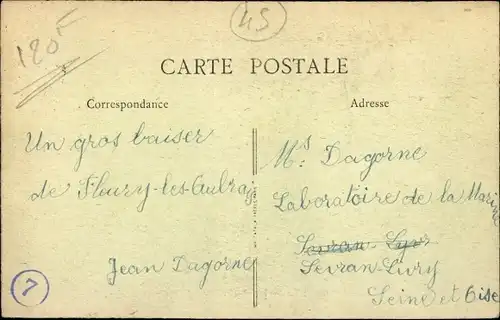 45
120F
CARTE POSTALE
Correspondance
Adresse
Un gros baiser
de Fleury-les-Aubray
Jean Dagorne
7
Ms. Dagorne
Laboratoire de la Marine
Sevran-Lyvr
Sevran-Livry
Seine et Oise